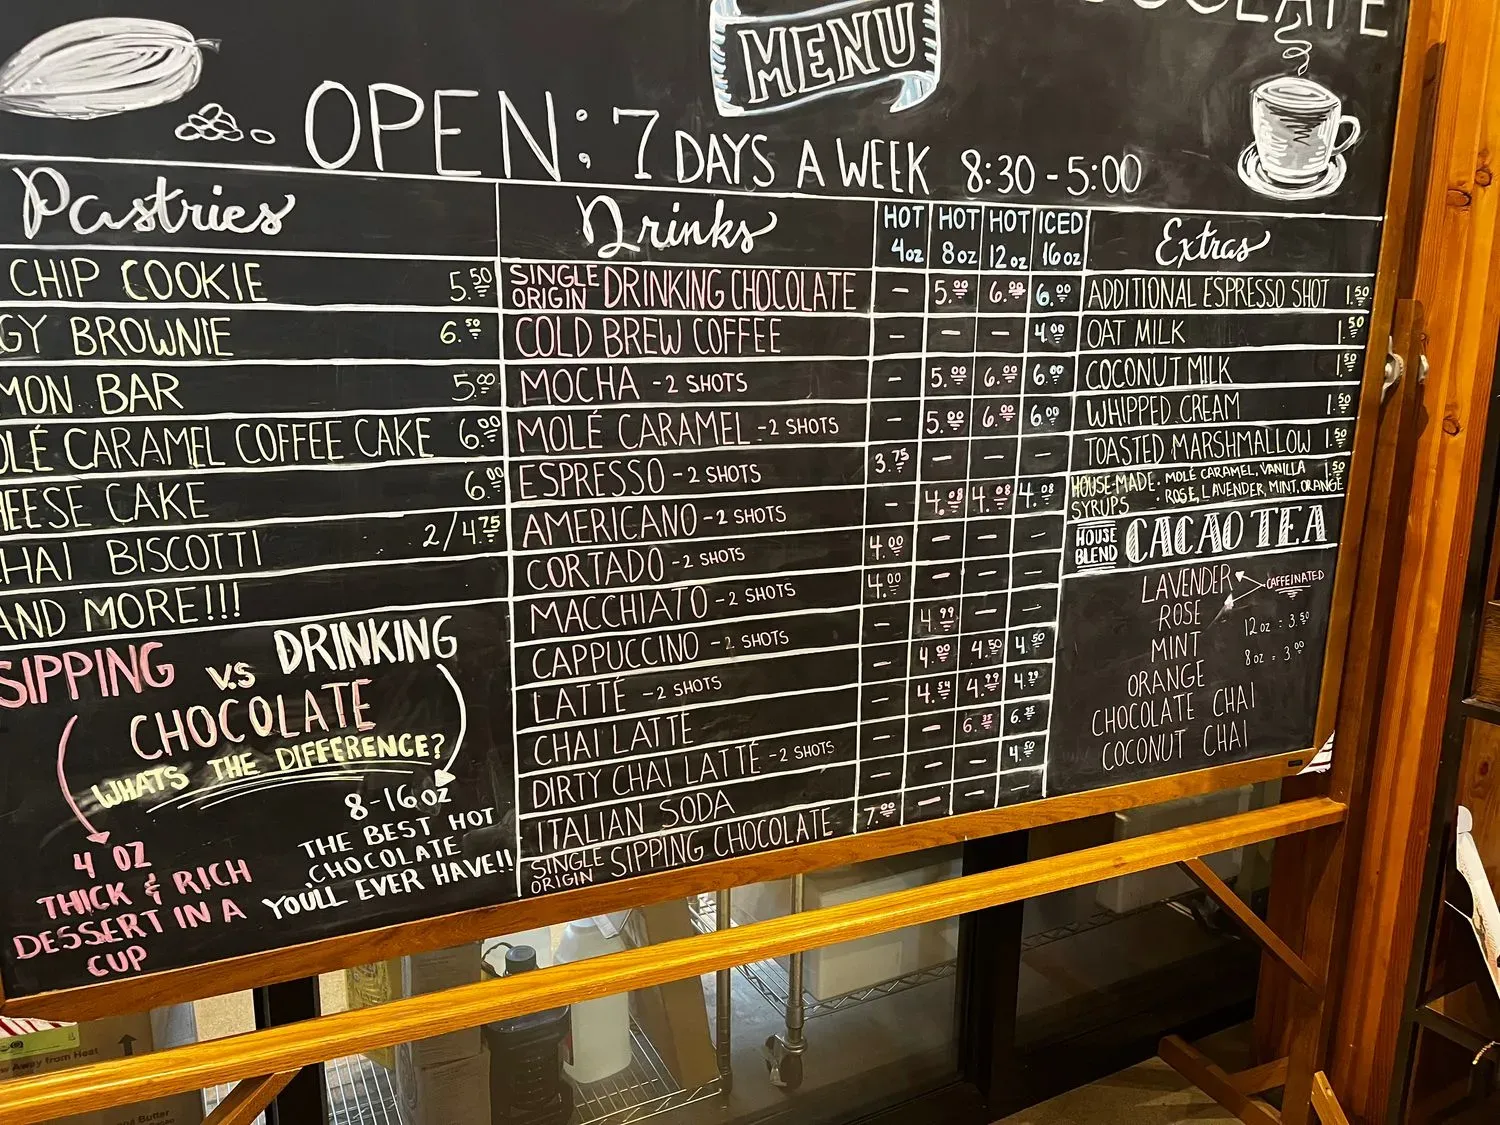 MENU
OPEN: 7 DAYS A WEEK 8:30 - 5:00
Pastries
CHIP COOKIE 5.50
GY BROWNIE 6.50
MON BAR 5.00
OLÉ CARAMEL COFFEE CAKE 6.00
HEESE CAKE 6.00
HAI BISCOTTI 2/4.75
AND MORE!!!
SIPPING VS DRINKING
CHOCOLATE
WHATS THE DIFFERENCE?
4 OZ
THICK & RICH
DESSERT IN A
CUP
8-16 OZ
THE BEST HOT
CHOCOLATE
YOU'LL EVER HAVE!!
Drinks HOT 4oz HOT 8oz HOT 12oz ICED 16oz
SINGLE ORIGIN DRINKING CHOCOLATE — 5.00 6.00 6.00
COLD BREW COFFEE — — — 4.00
MOCHA - 2 SHOTS — 5.00 6.00 6.00
MOLÉ CARAMEL - 2 SHOTS — 5.00 6.00 6.00
ESPRESSO - 2 SHOTS 3.75 — — —
AMERICANO - 2 SHOTS — 4.08 4.08 4.08
CORTADO - 2 SHOTS 4.00 — — —
MACCHIATO - 2 SHOTS 4.00 — — —
CAPPUCCINO - 2 SHOTS — 4.99 — —
LATTÉ - 2 SHOTS — 4.00 4.50 4.50
CHAI LATTÉ — 4.54 4.99
DIRTY CHAI LATTÉ - 2 SHOTS — —
ITALIAN SODA — — — 4.50
SINGLE ORIGIN SIPPING CHOCOLATE 7.00 — — —
Extras
ADDITIONAL ESPRESSO SHOT 1.50
OAT MILK 1.50
COCONUT MILK 1.50
WHIPPED CREAM 1.50
TOASTED MARSHMALLOW 1.50
HOUSE-MADE SYRUPS · MOLÉ CARAMEL, VANILLA 1.50
· ROSE, LAVENDER, MINT, ORANGE
HOUSE BLEND CACAO TEA
LAVENDER CAFFEINATED
ROSE
12oz = 3.50
MINT
8oz = 3.00
ORANGE
CHOCOLATE CHAI
COCONUT CHAI